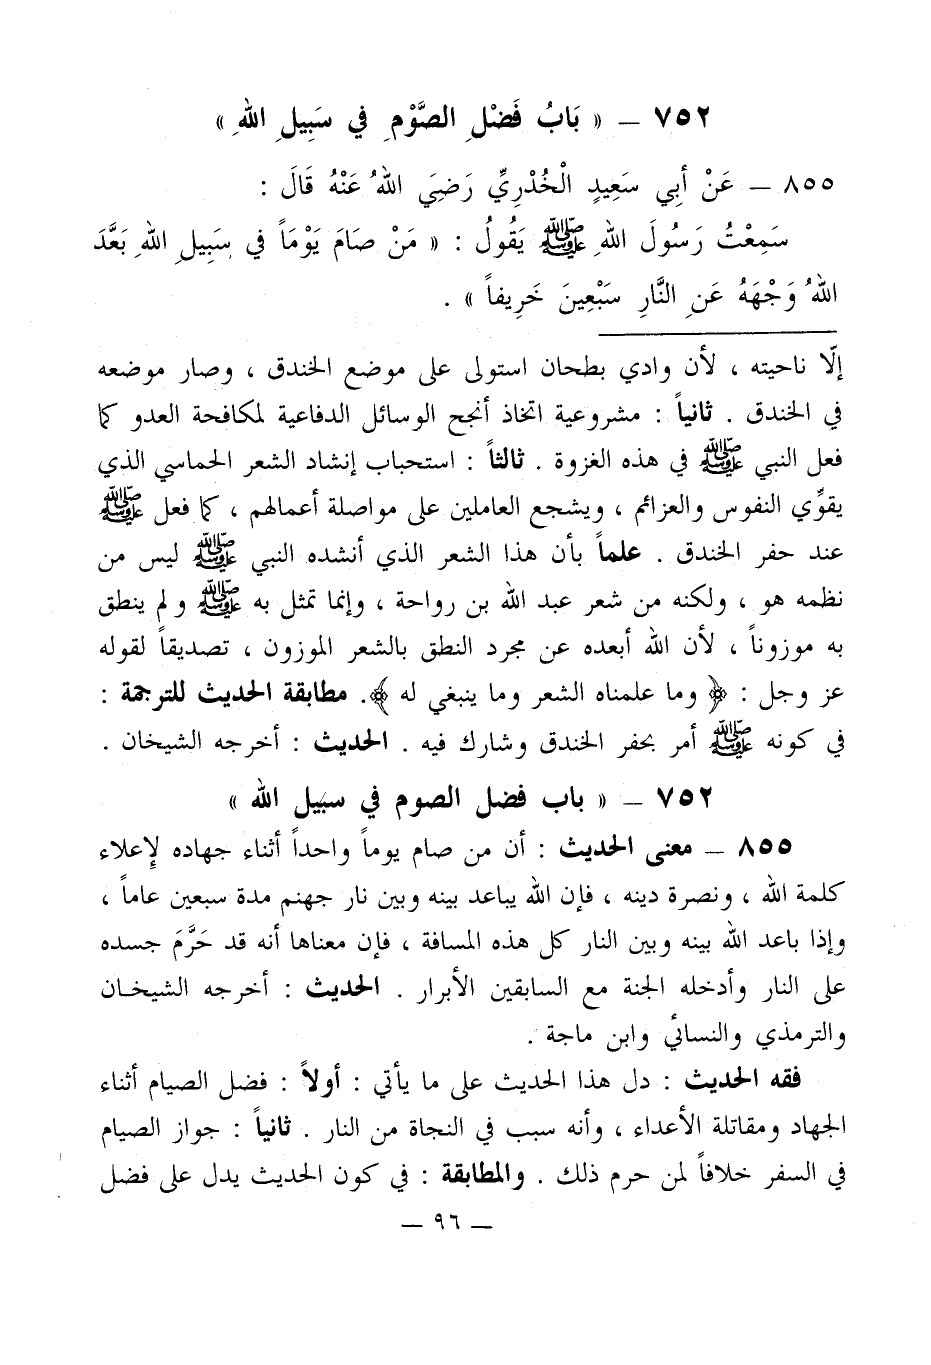 ٧٥٢ – « بَابُ فَضْلِ الصَّوْمِ فِي سَبِيلِ اللهِ »
٨٥٥ – عَنْ أَبِي سَعِيدٍ الْخُدْرِيِّ رَضِيَ اللهُ عَنْهُ قَالَ :
سَمِعْتُ رَسُولَ اللهِ ﷺ يَقُولُ : « مَنْ صَامَ يَوْمَاً في سَبِيلِ اللهِ بَعَّدَ
اللهُ وَجْهَهُ عَنِ النَّارِ سَبْعِينَ خَرِيفاً » .
إلّا ناحيته ، لأن وادي بطحان استولى على موضع الخندق ، وصار موضعه
في الخندق . ثانياً : مشروعية اتخاذ أنجح الوسائل الدفاعية لمكافحة العدو كما
فعل النبي ﷺ في هذه الغزوة . ثالثاً : استحباب إنشاد الشعر الحماسي الذي
يقوِّي النفوس والعزائم ، ويشجع العاملين على مواصلة أعمالهم ، كما فعل ﷺ
عند حفر الخندق . علماً بأن هذا الشعر الذي أنشده النبي ﷺ ليس من
نظمه هو ، ولكنه من شعر عبد الله بن رواحة ، وإنما تمثل به ﷺ ولم ينطق
به موزوناً ، لأن الله أبعده عن مجرد النطق بالشعر الموزون ، تصديقاً لقوله
عز وجل : ﴿ وما علمناه الشعر وما ينبغي له ﴾. مطابقة الحديث للترجمة :
في كونه ﷺ أمر بحفر الخندق وشارك فيه . الحديث : أخرجه الشيخان .
٧٥٢ – « باب فضل الصوم في سبيل الله »
٨٥٥ – معنى الحديث : أن من صام يوماً واحداً أثناء جهاده لإعلاء
كلمة الله ، ونصرة دينه ، فإن الله يباعد بينه وبين نار جهنم مدة سبعين عاماً ،
وإذا باعد الله بينه وبين النار كل هذه المسافة ، فإن معناها أنه قد حَرَّمَ جسده
على النار وأدخله الجنة مع السابقين الأبرار . الحديث : أخرجه الشيخان
والترمذي والنسائي وابن ماجة .
فقه الحديث : دل هذا الحديث على ما يأتي : أولاً : فضل الصيام أثناء
الجهاد ومقاتلة الأعداء ، وأنه سبب في النجاة من النار . ثانياً : جواز الصيام
في السفر خلافاً لمن حرم ذلك . والمطابقة : في كون الحديث يدل على فضل
– ٩٦ –